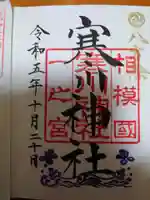 八方除
相模國
一之宮
寒川神社
令和五年十月二十日